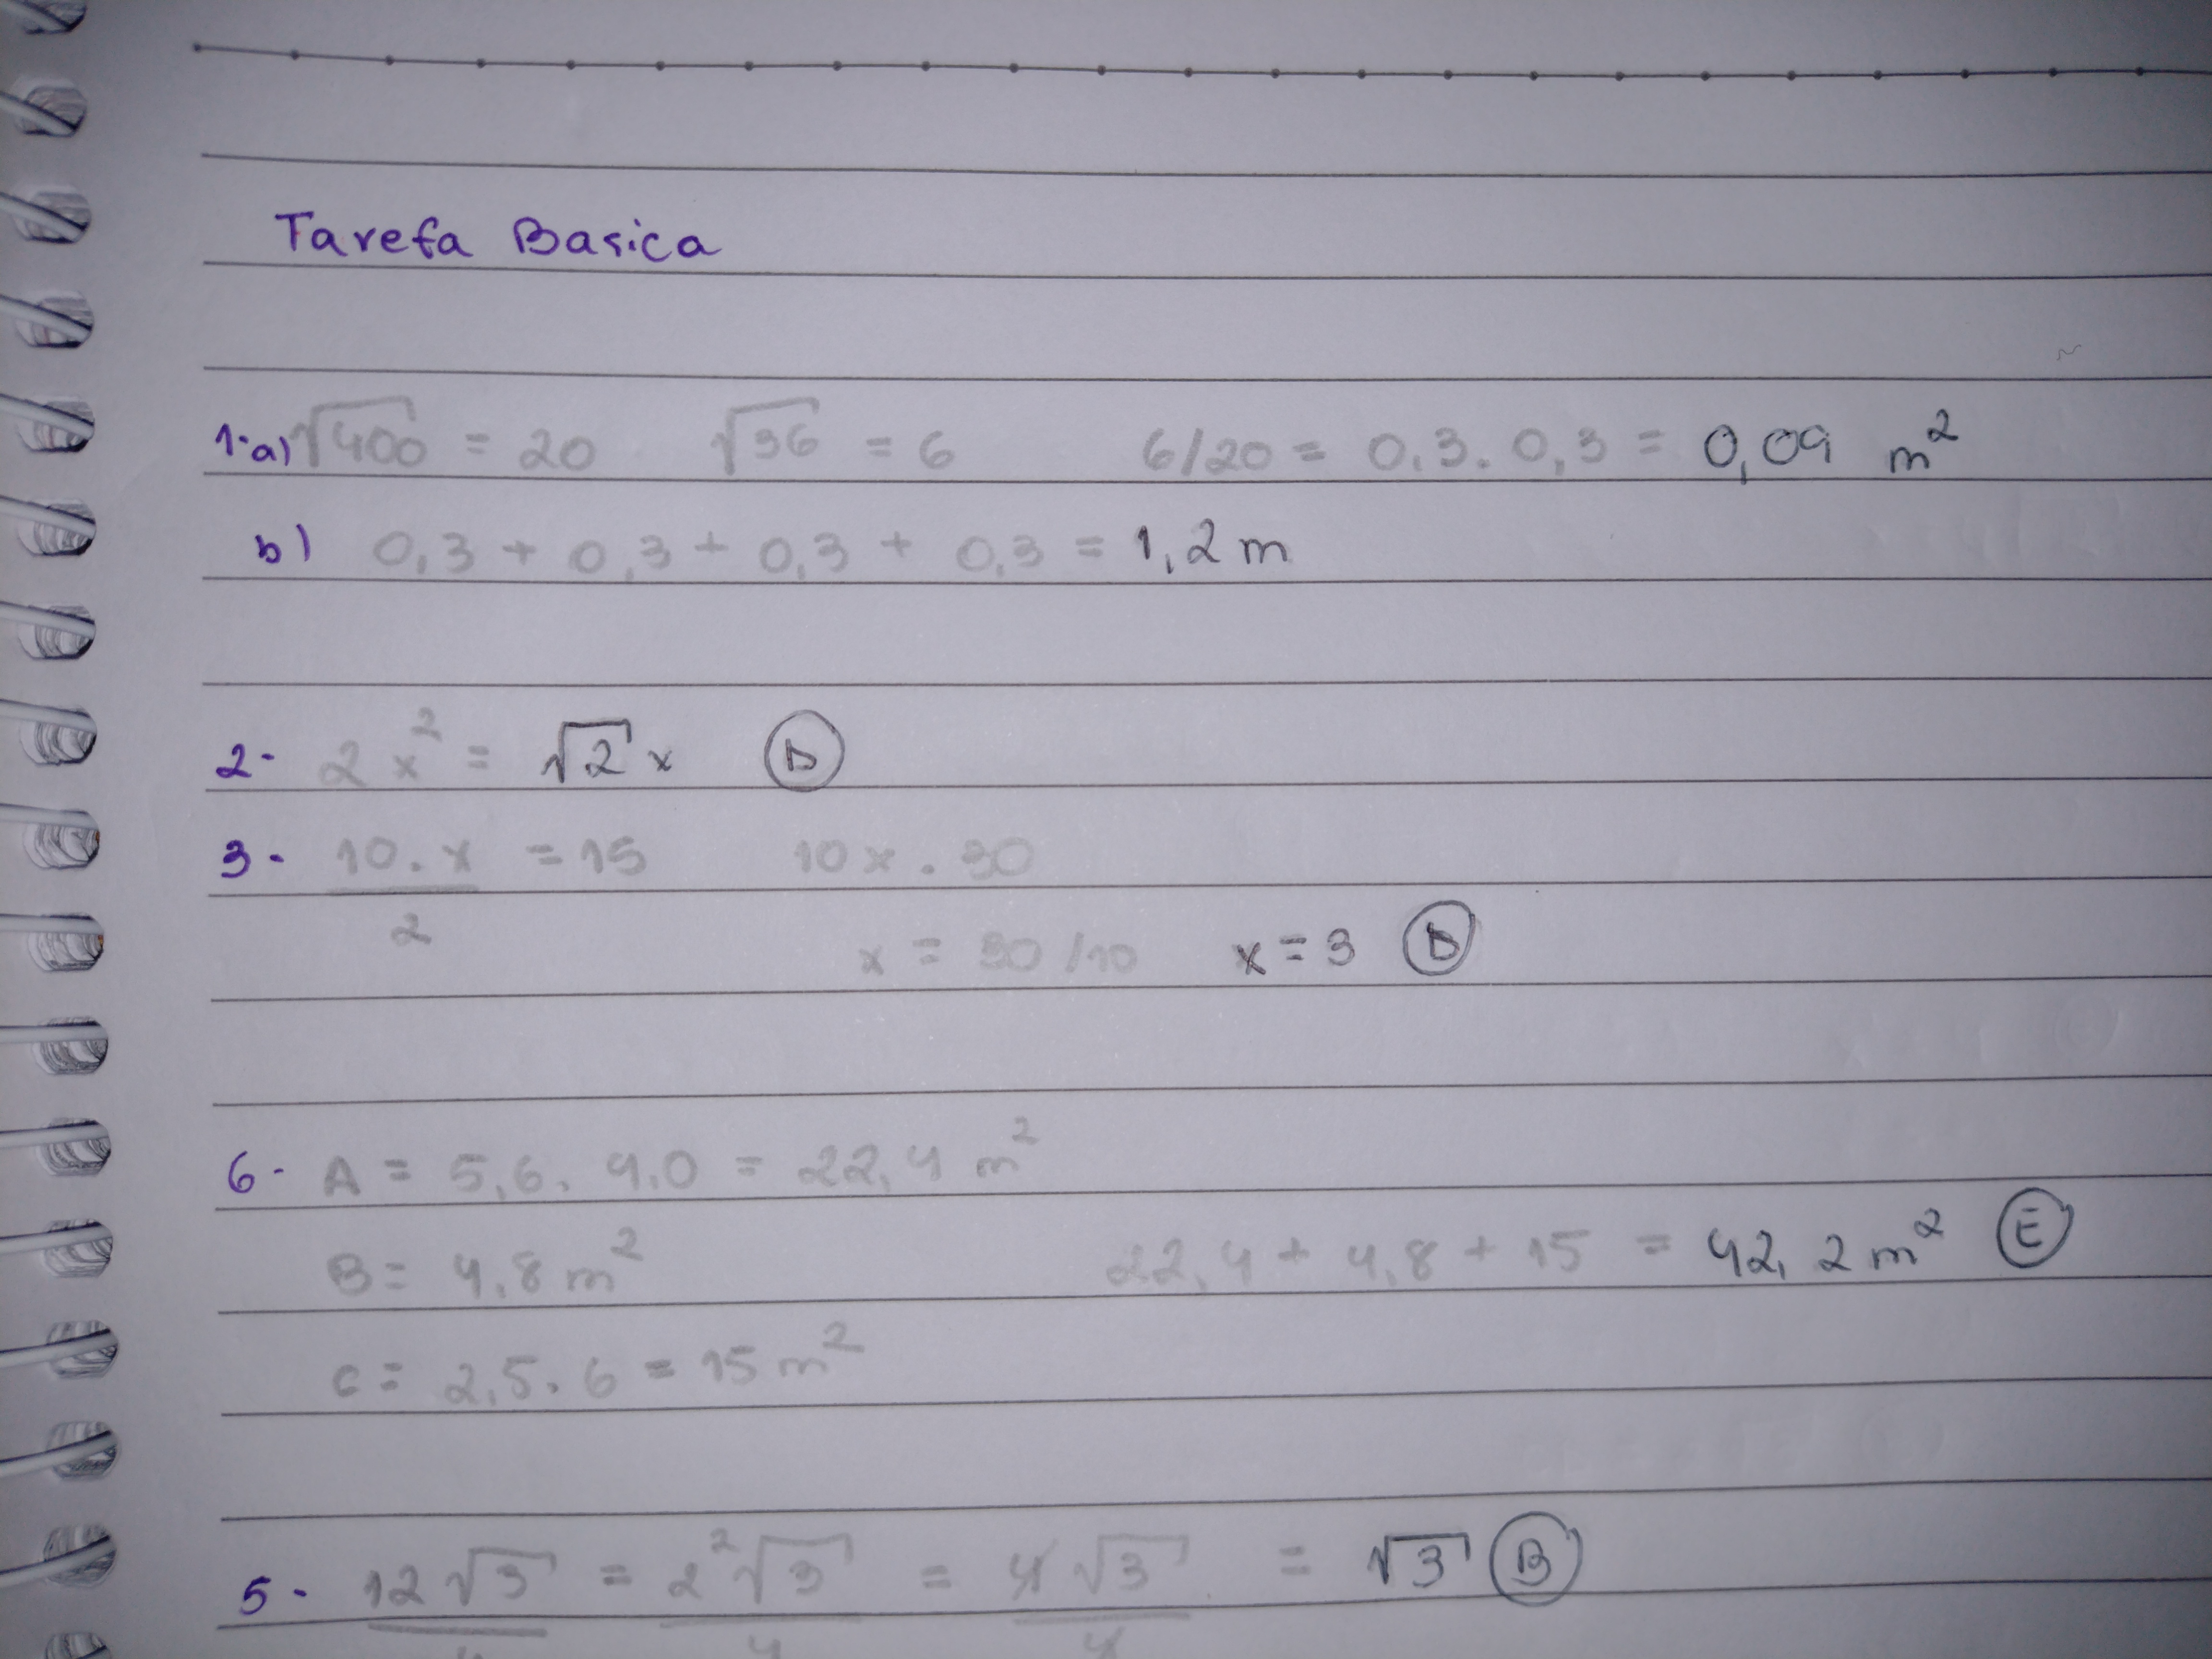 Tarefa Basica
1-a) √400 = 20 √36 = 6 6/20 = 0,3. 0,3 = 0,09 m²
b) 0,3 + 0,3 + 0,3 + 0,3 = 1,2 m
2- 2x² = √2 x D
3- 10.x = 15 10x . 30
2
x = 30/10 x = 3 D
6- A = 5,6. 4,0 = 22,4 m²
B = 4,8 m² 22,4 + 4,8 + 15 = 42,2 m² E
C = 2,5. 6 = 15 m²
5- 12√3 = 2²√3 = 4√3 = √3 B
4 4